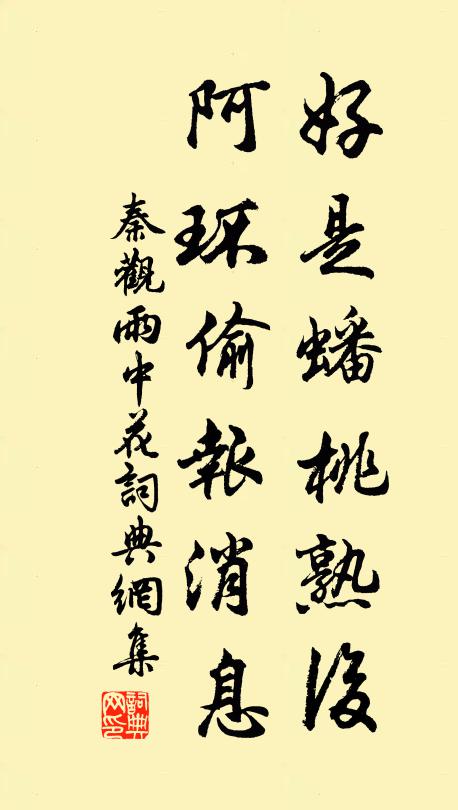 好是蟠桃熟後
阿环偷報消息
秦觀雨中花詞典網集
詞典网印